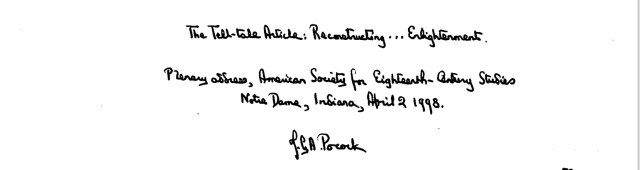 The Tell-tale Article: Reconstructing ... Enlightenment.
Plenary address, American Society for Eighteenth-Century Studies
Notre Dame, Indiana, April 2 1998.
J.G.A. Pocock